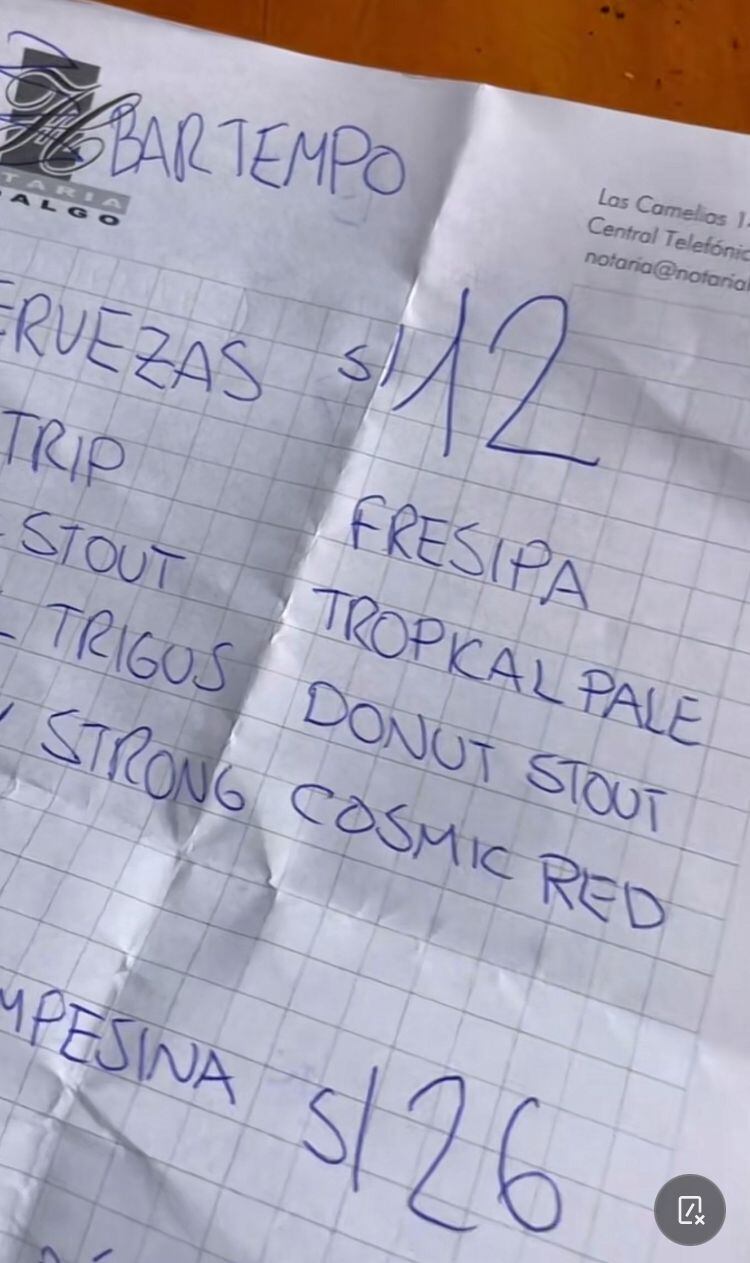 BAR TEMPO
TARIA
ALGO
Las Camelias 1
Central Telefónic
notaria@notarial
ERVEZAS S/12
TRIP FRESIPA
STOUT TROPICAL PALE
TRIGUS DONUT STOUT
STRONG COSMIC RED
MPESINA S/26